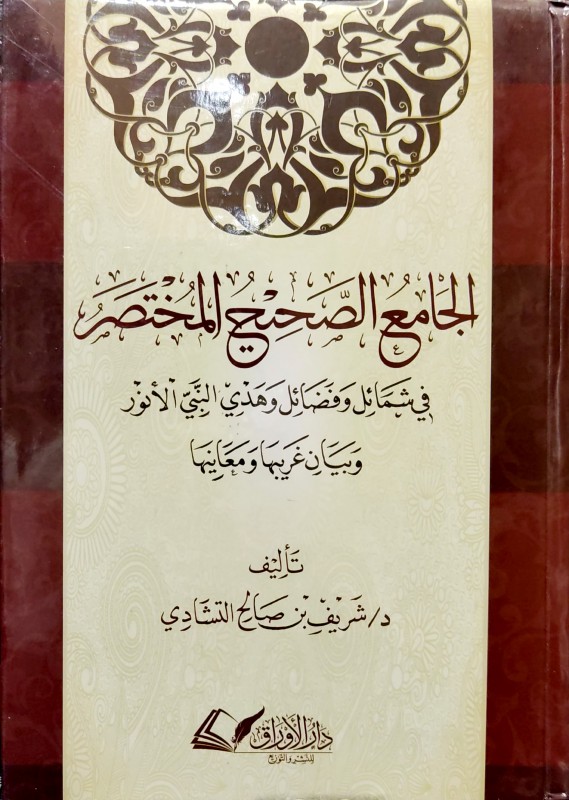 الجَامِعُ الصَّحِيْحُ المُخْتَصَرُ
في شَمَائِل وَفَضَائِل وَهَدْيِ النَّبِيِّ الأَنْوَر
وَبَيَان غَرِيبِهَا وَمَعَانِيهَا
تَأْلِيف
د/ شَرِيْف بْن صَالِح التشَادِي
دَارُ الأَوْرَاق
للنشر والتوزيع